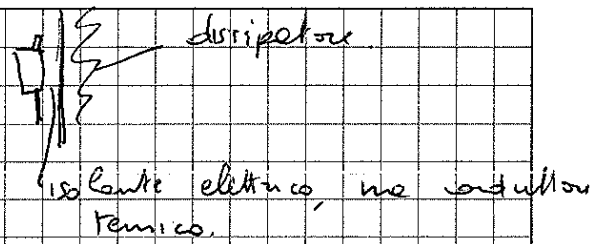 dissipatore
isolante elettrico, ma conduttore
termico.